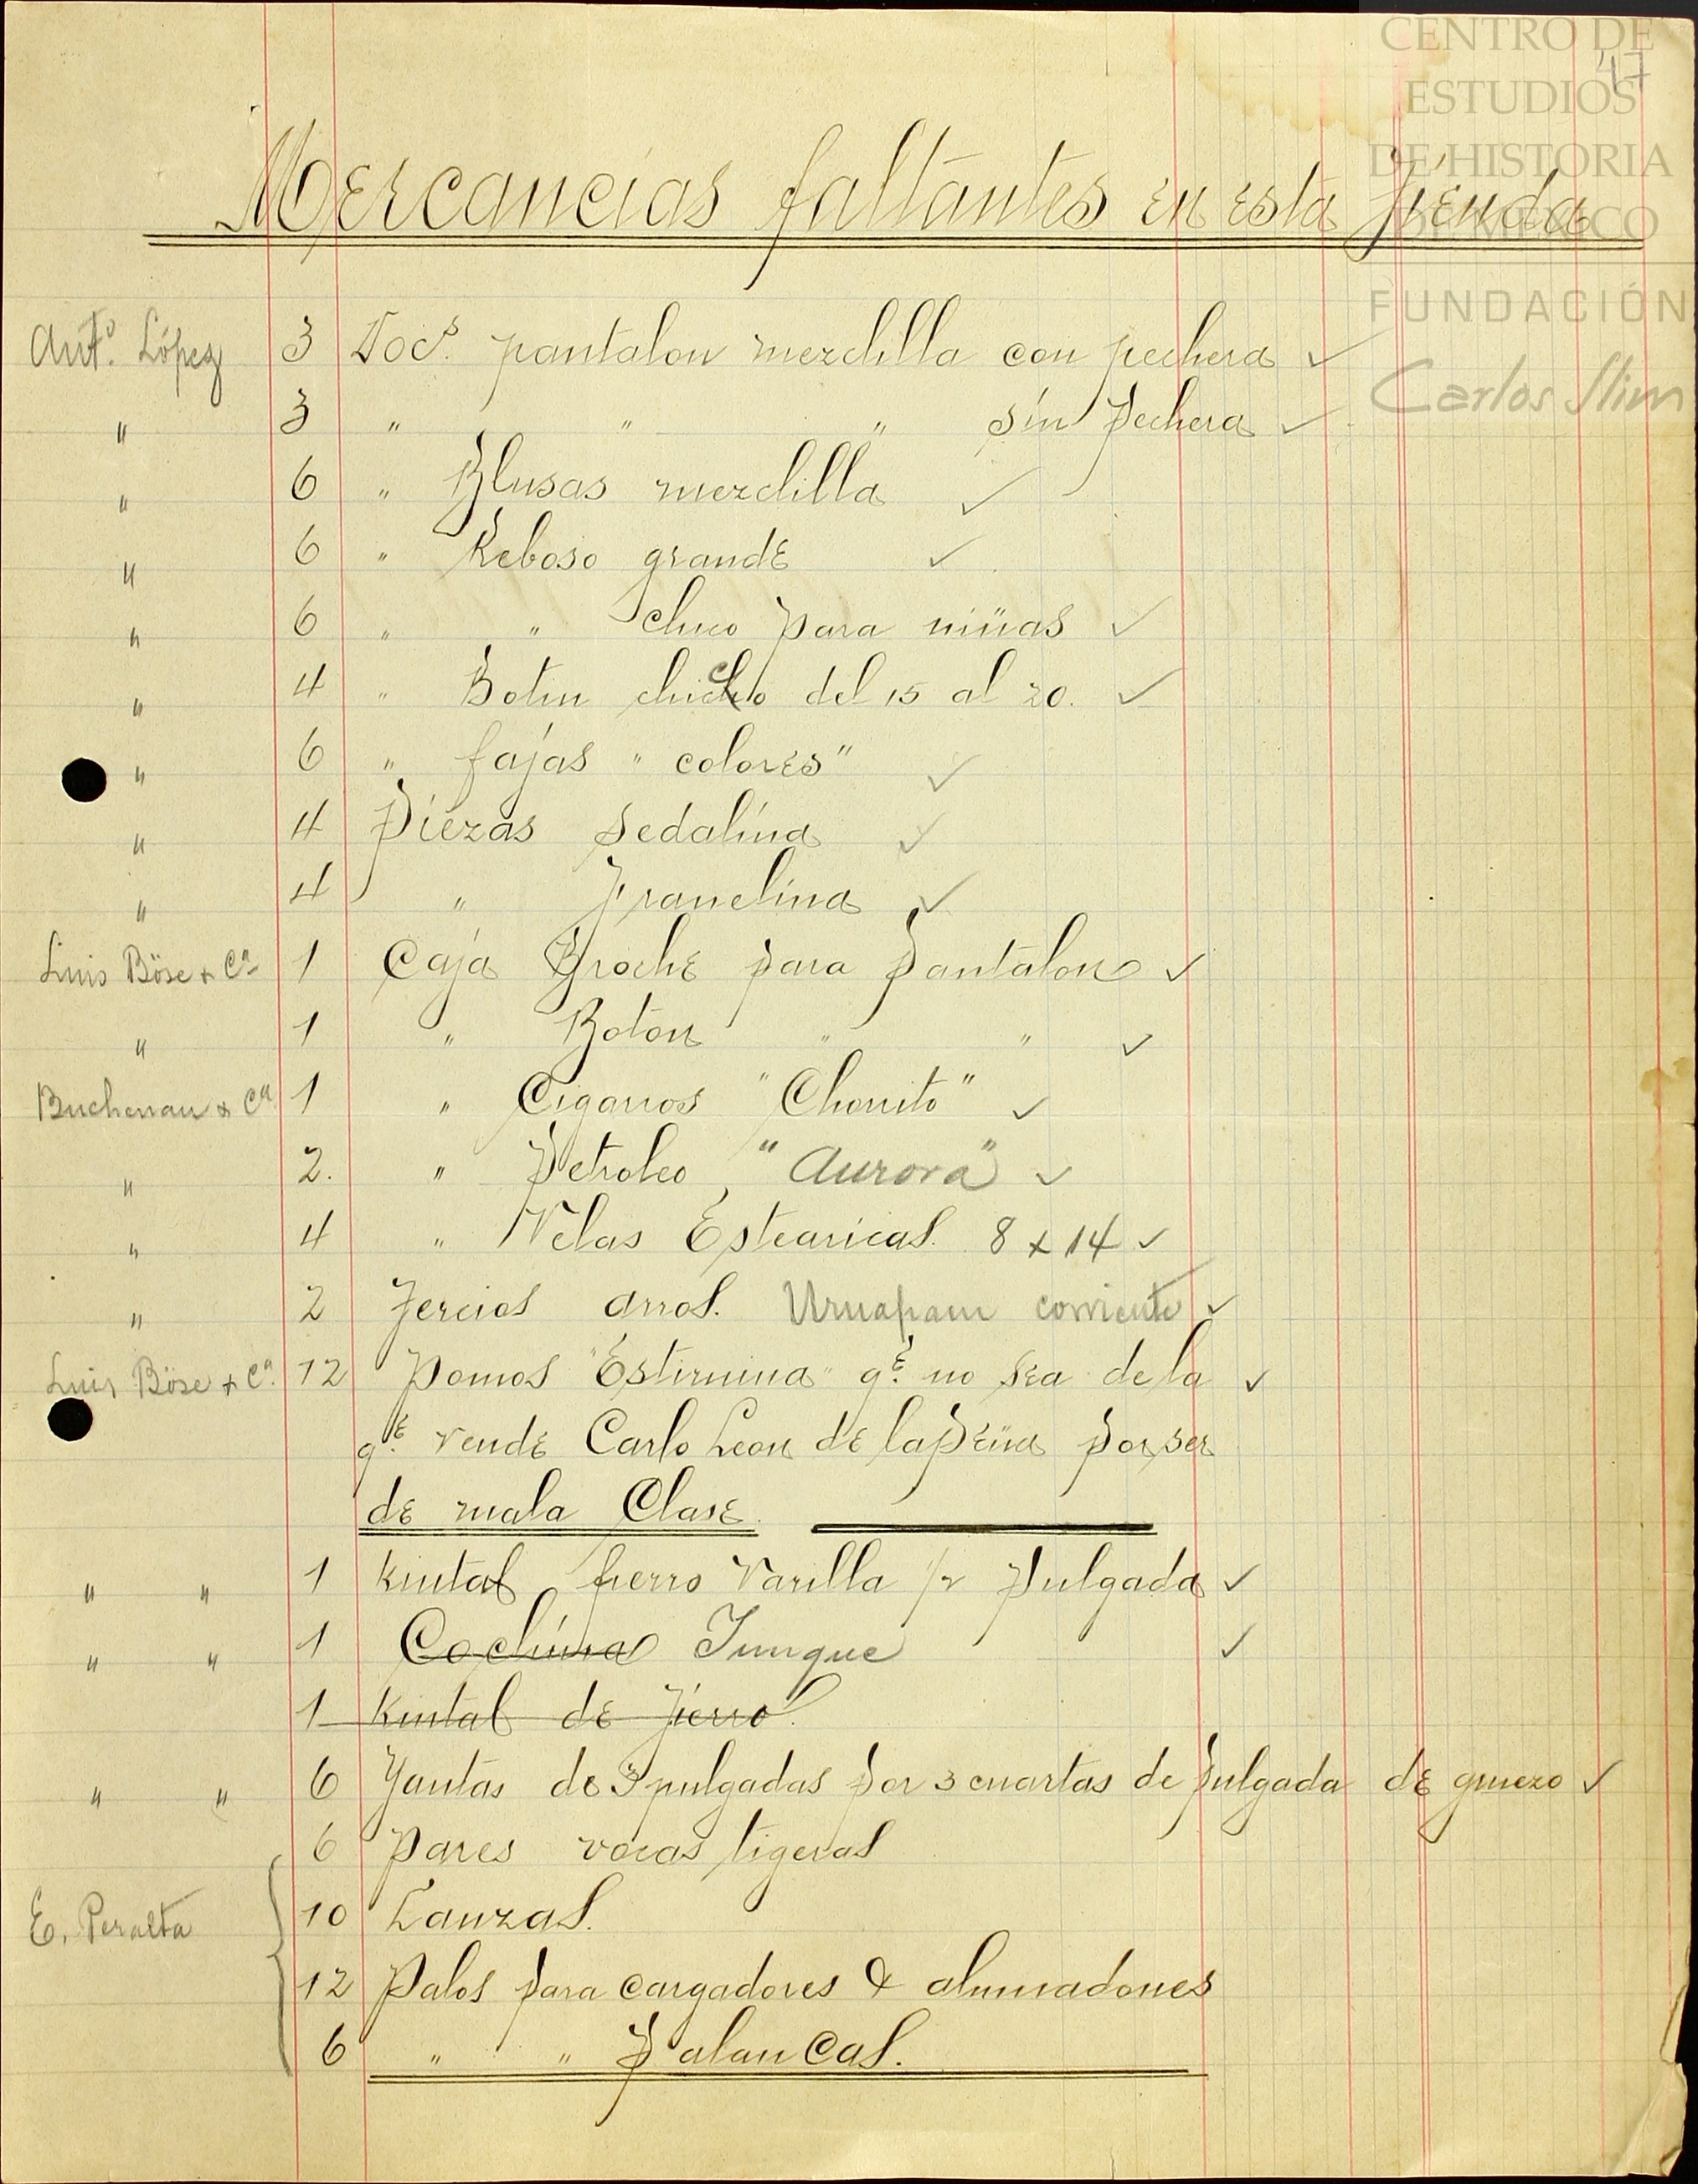 CENTRO DE
47
ESTUDIOS
DE HISTORIA
DE MEXICO
FUNDACIÓN
Carlos Slim
Mercancias faltantes en esta tienda
Antº. López 3 Docs. pantalon mezclilla con pechera ✓
" 3 " " " sin pechera ✓
" 6 " Blusas mezclilla ✓
" 6 " Reboso grande ✓
" 6 " " chico para niñas ✓
" 4 " Botin chico del 15 al 20. ✓
" 6 " fajas "colores" ✓
" 4 Piezas Sedalina ✓
" 4 " Franelina ✓
Luis Böse & Cª 1 Caja Broche para Pantalon ✓
" 1 " Boton " " ✓
Buchenau & Cª 1 " Cigarros "Chorrito" ✓
" 2. " Petroleo, "Aurora" ✓
" 4 " Velas Estearicas. 8 x 14 ✓
" 2 Tercios arros. Uruapam corriente ✓
Luis Böse & Cª. 12 Pomos "Estirnina" qe. no sea de la ✓
qe. vende Carlo Leon de la Peña por ser
de mala Clase.
" " 1 Kintal fierro Varilla 1/2 Pulgada ✓
" " 1 Cochina Yunque ✓
1 Kintal de fierro.
" " 6 Yantas de 3 pulgadas por 3 cuartas de pulgada de gruezo ✓
6 Pares vacas tigeras
E. Peralta 10 Lanzas.
12 Palos para cargadores &
6 " " Palancas.